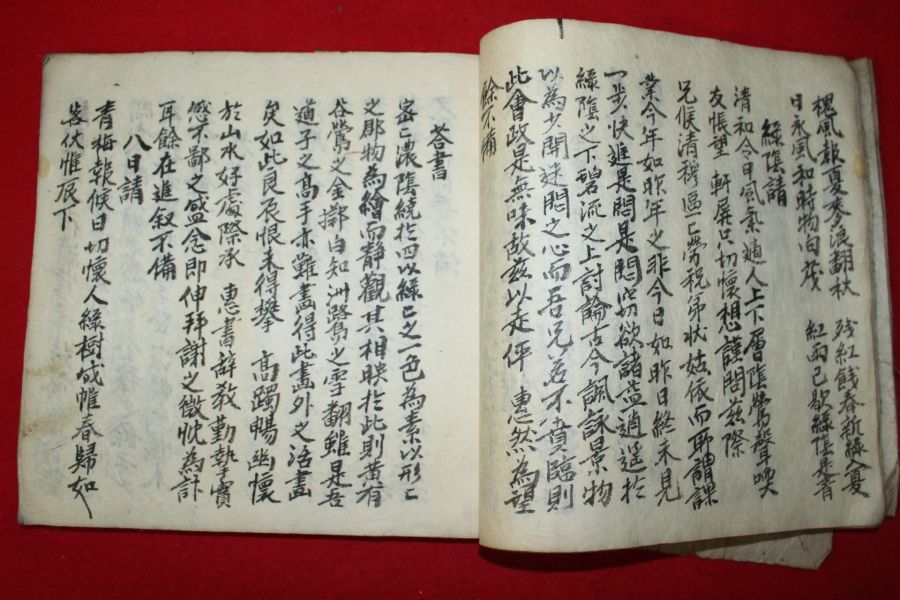 槐風報夏麥浪翻秋　殘紅餞春新綠入夏
日永風和時物向茂　紅雨已歇綠陰
綠陰請
清和令日風氣適人上下層陰鶯聲喚
友悵望　軒屛只切懷想謹問玆際
兄候清穆區〻勞稅弟狀姑依而耶謂課
業今年如昨年之非今日如昨日終未見
一步快進是悶是悶切欲諸益逍遙於
綠陰之下碧流之上討論古今諷詠景物
以為少開迷悶之心而吾兄若不賁臨則
此會政是無味故玆以走伻　惠然為望
餘不備
答書
密〻濃陰繞於四以綠〻之一色為素以形〻
之郡物為繪而靜觀其相映於此則黃有
谷鶯之金擲白知洲鷺之雪翻雖是吾
道子之高手亦難盡得此畫外之活畫
矣如此良辰恨未得攀　高躅暢幽懷
於山水好處際承　惠書辭教勤摯實
感不鄙之盛念即伸拜謝之微忱為計
耳餘在進叙不備
八日請
青梅報候日切懷人綠樹成帷春歸如
客伏惟辰下